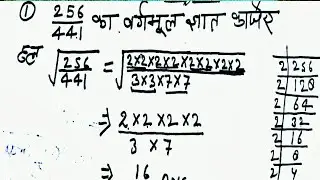 ① 256/441 का वर्गमूल ज्ञात कीजिए
हल √256/441 = √2×2×2×2×2×2×2×2/3×3×7×7
⇒ 2×2×2×2/3×7
⇒ 16
2 | 256
2 | 128
2 | 64
2 | 32
2 | 16
2 | 8
2 | 4